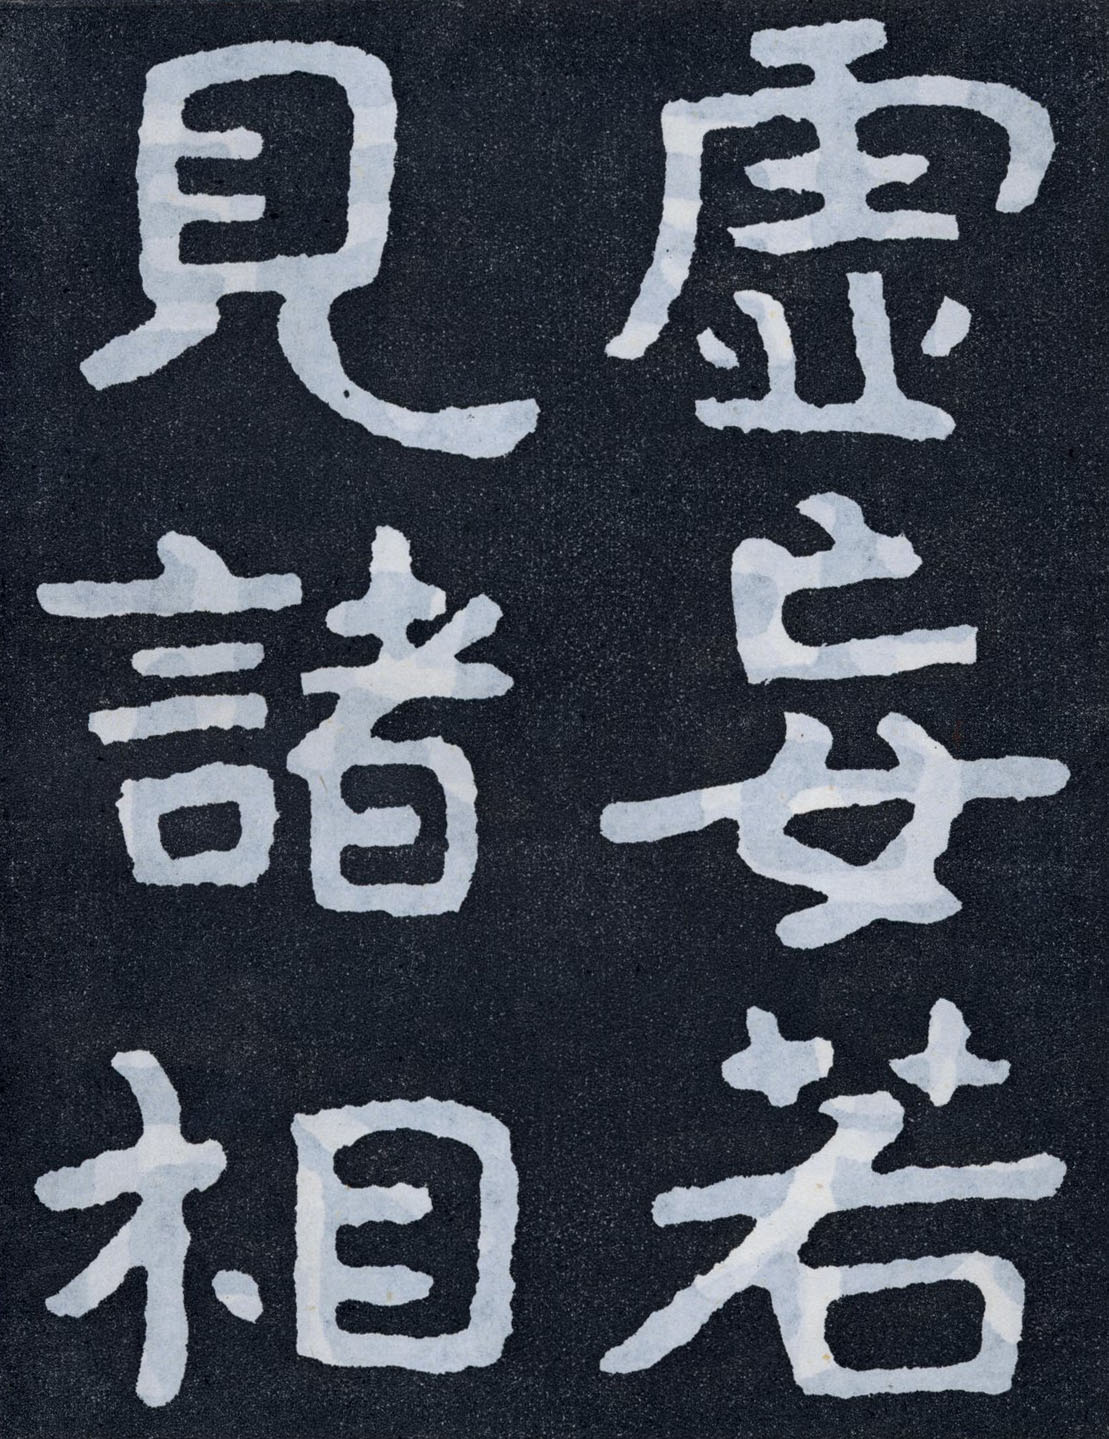 虛妄若
見諸相